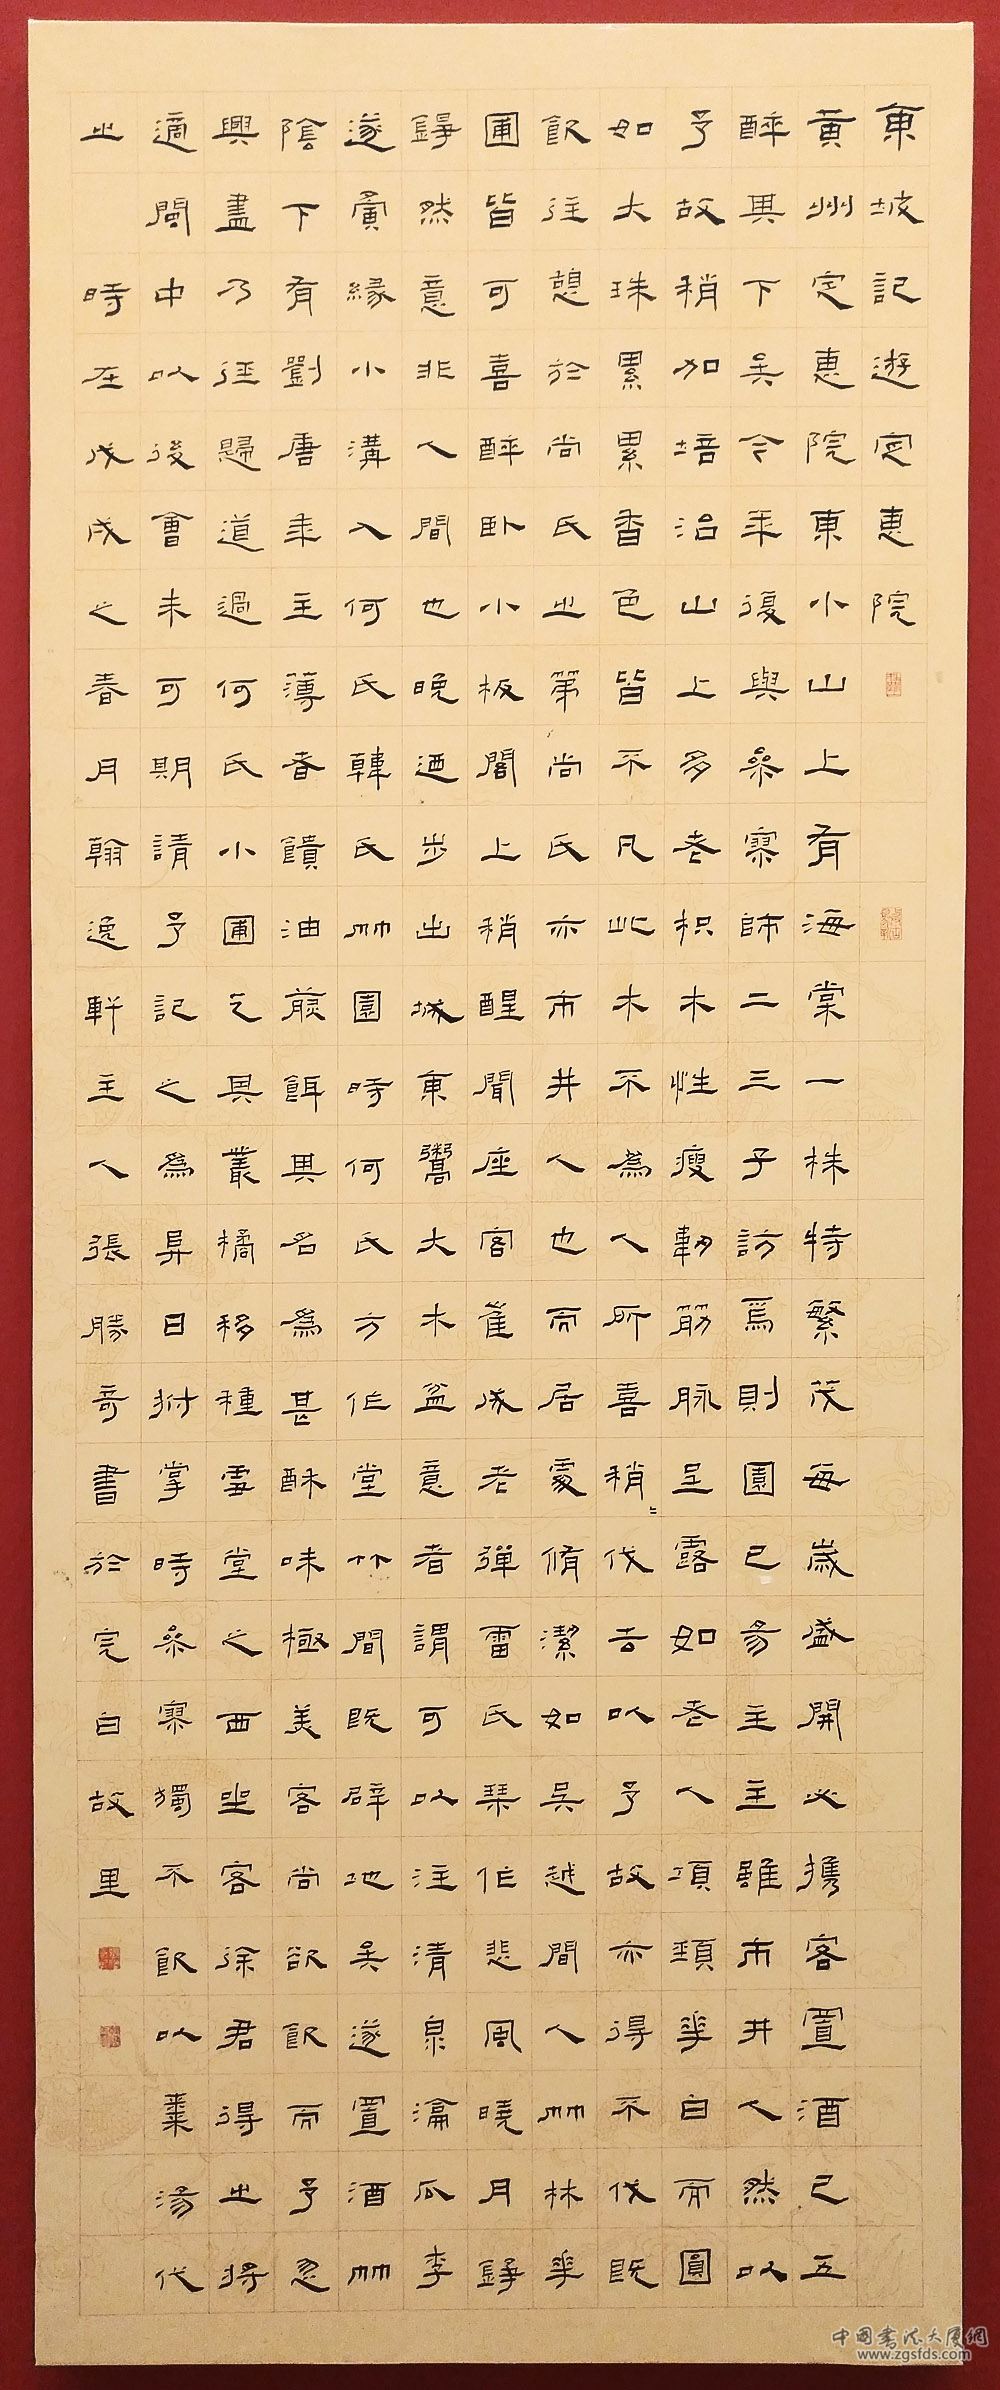 東坡記遊定惠院
黃州定惠院東小山上有海棠一株特繁茂每歲盛開必攜客置酒已五
醉其下矣今年復與參寥師二三子訪焉則園已易主主雖市井人然以
予故稍加培治山上多老枳木性瘦韌筋脉呈露如老人項頸華白而圓
如大珠累累香色皆不凡此木不為人所喜稍〻伐去以予故亦得不伐既
飲往憩於尚氏之第尚氏亦市井人也而居處脩潔如吳越間人竹林華
圃皆可喜醉臥小板閣上稍醒聞座客崔成老彈雷氏琴作悲風曉月錚
錚然意非人間也晚迺步出城東鬻大木盆意者謂可以注清泉瀹瓜李
遂夤緣小溝入何氏韓氏竹園時何氏方作堂竹間既辟地矣遂置酒竹
陰下有劉唐年主簿者饋油煎餌其名為甚酥味極美客尚欲飲而予忽
興盡乃徑歸道過何氏小圃乞其叢橘移種雪堂之西坐客徐君得之將
適閩中以後會未可期請予記之為異日拊掌時參寥獨不飲以棗湯代
之 時在戊戌之春月翰逸軒主人張勝奇書於完白故里
中國書法大廈網
www.zgsfds.com